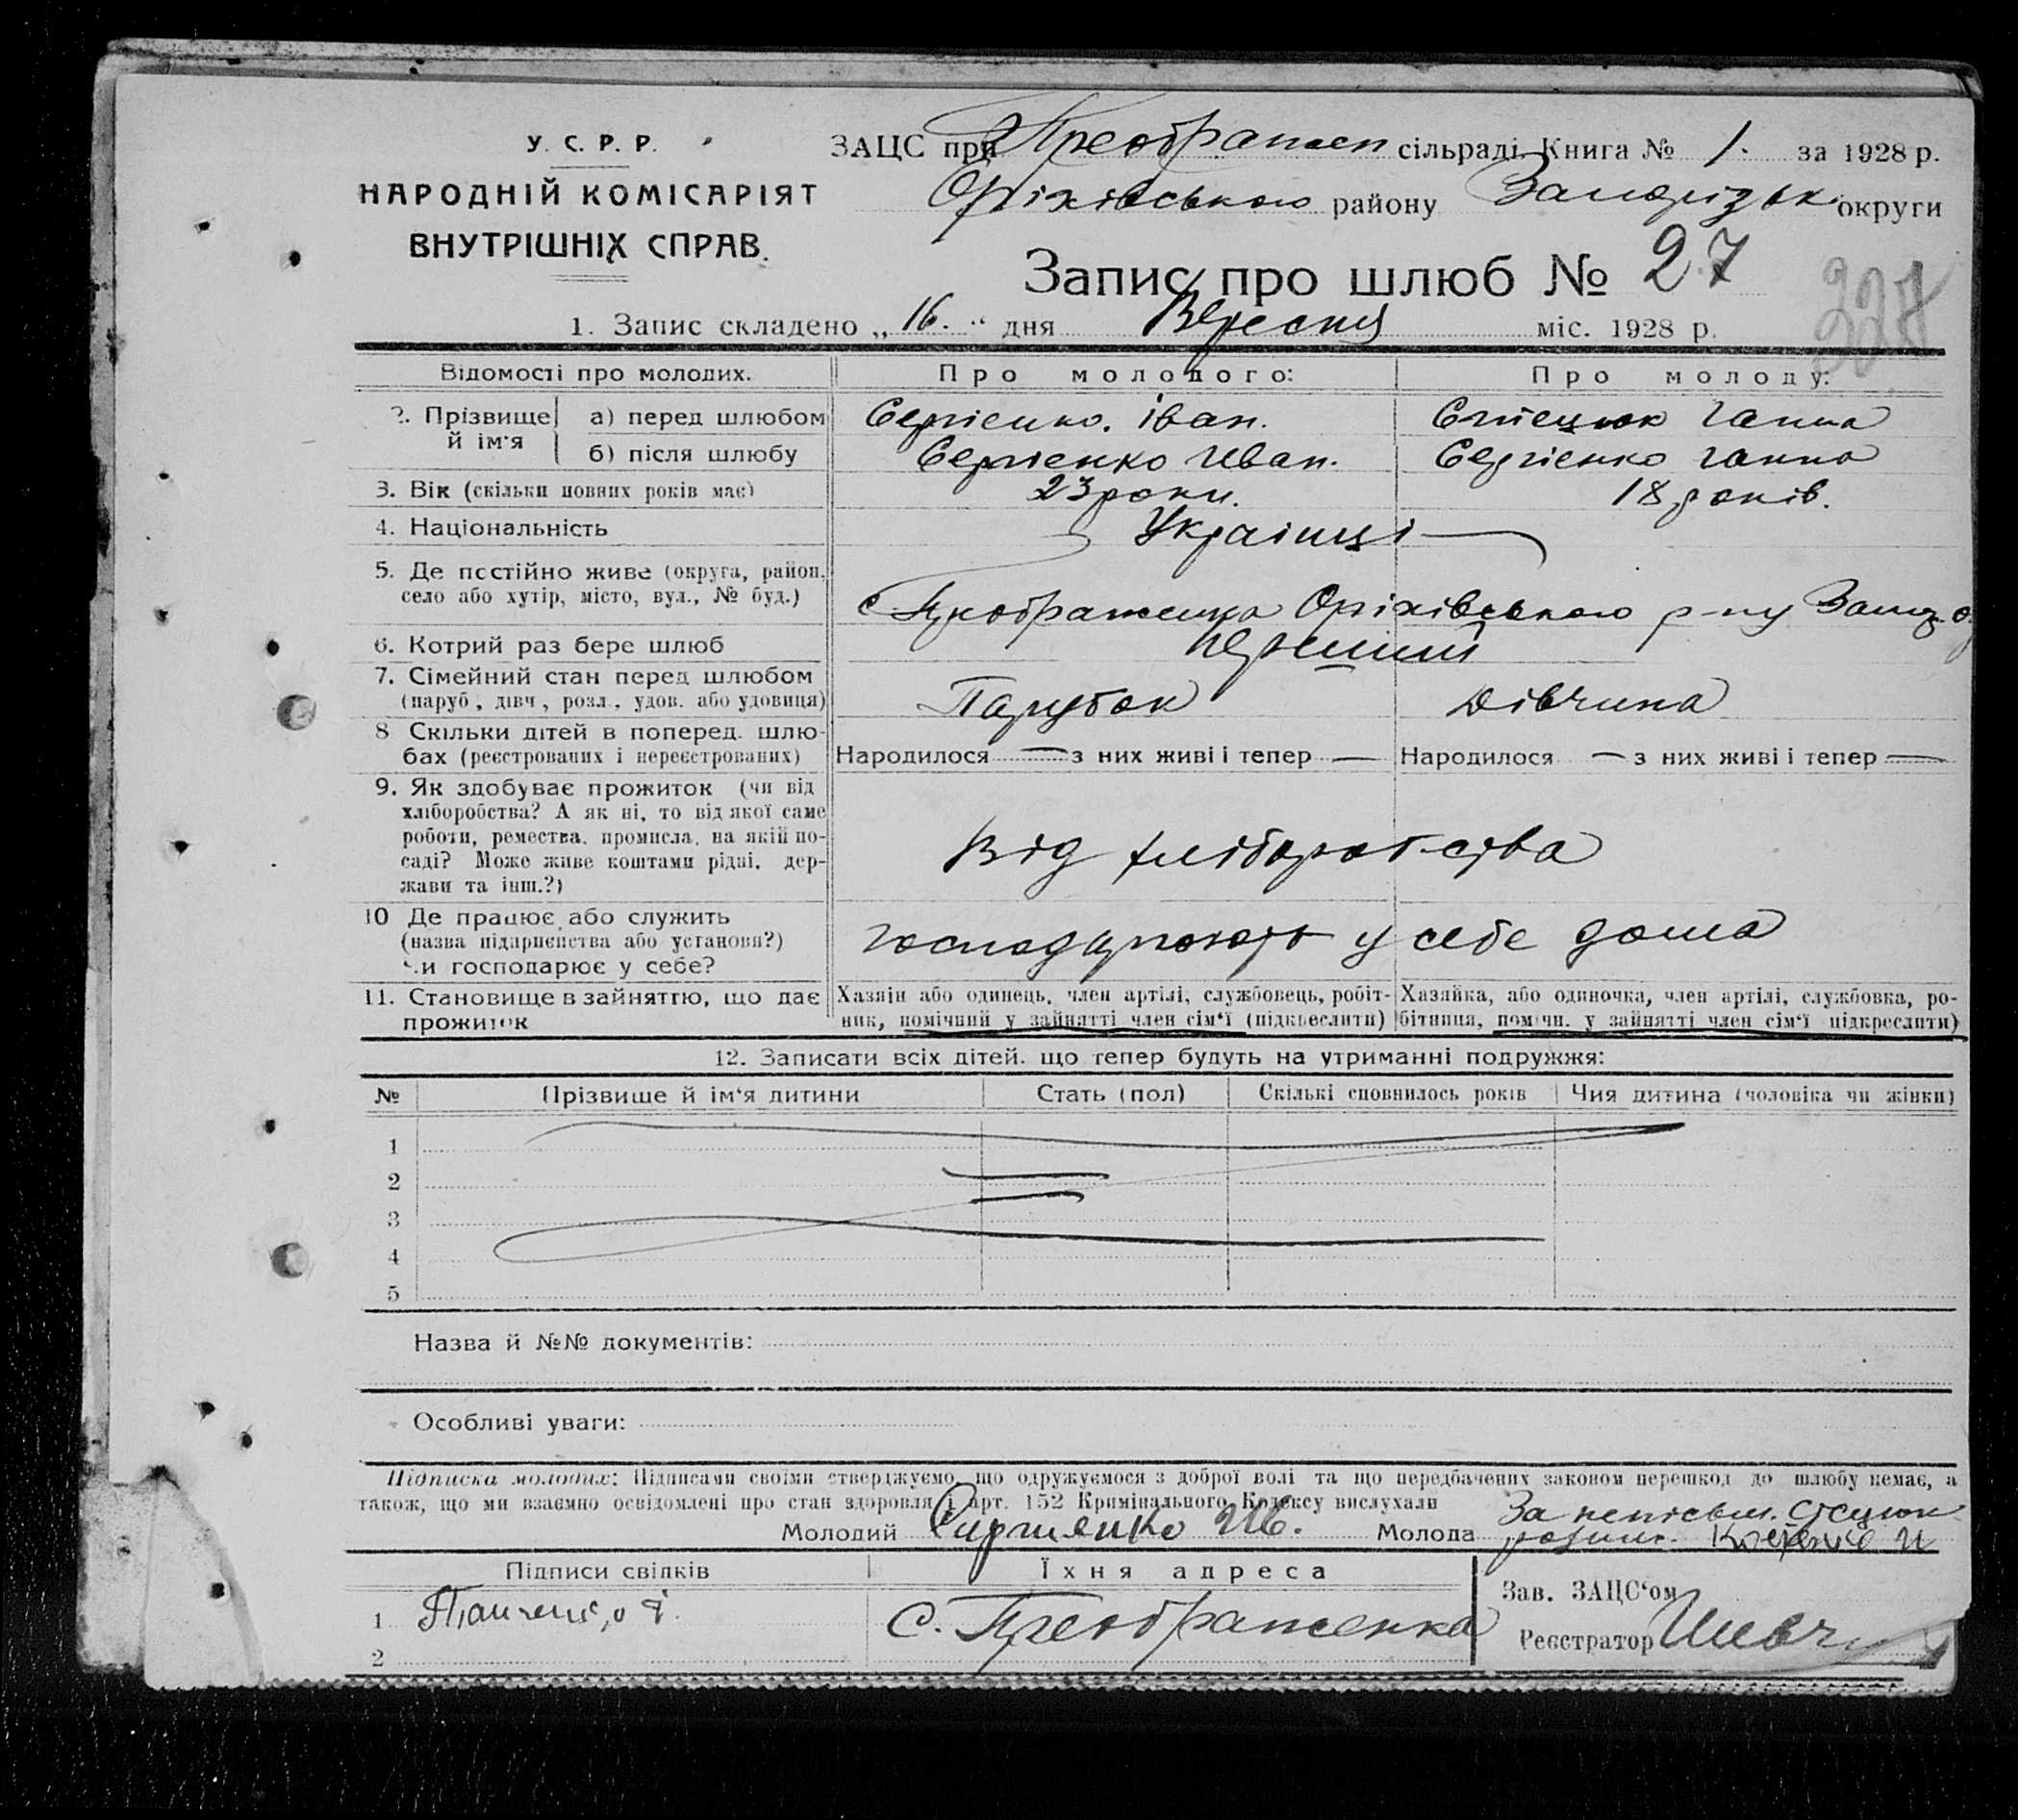 У. С. Р. Р.
НАРОДНІЙ КОМІСАРІЯТ
ВНУТРІШНІХ СПРАВ.
ЗАЦС при Преображен сільраді Книга № 1. за 1928 р.
Оріхівського району Запорізьк округи
Запис про шлюб № 27
228
1. Запис складено „16.“ дня Вересня міс. 1928 р.
Відомості про молодих. Про молодого: Про молоду:
2. Прізвище й ім'я а) перед шлюбом Сергієнко. Іван. Стецюк Ганна
б) після шлюбу Сергієнко Иван. Сергієнко Ганна
3. Вік (скільки повних років має) 23 роки. 18 років.
4. Національність Українці
5. Де постійно живе (округа, район, село або хутір, місто, вул., № буд.) с Преображенка Оріхівського р-ну Запор. о
6. Котрий раз бере шлюб перший
7. Сімейний стан перед шлюбом (паруб, дівч, розл., удов. або удовиця) Парубок Дівчина
8 Скільки дітей в поперед. шлюбах (реєстрованих і нереєстрованих) Народилося — з них живі і тепер — Народилося — з них живі і тепер —
9. Як здобуває прожиток (чи від
хліборобства? А як ні, то від якої саме
роботи, ремества, промисла, на якій по-
саді? Може живе коштами рідні, дер-
жави та інш.?)
Від хліборобства
10 Де працює або служить
(назва підприємства або установи?)
чи господарює у себе?
господарюють у себе дома
11. Становище в зайняттю, що дає
прожиток
Хазяїн або одинець, член артілі, службовець, робіт-
ник, помічний у зайнятті член сім'ї (підкреслити)
Хазяйка, або одиночка, член артілі, службовка, ро-
бітниця, помічн. у зайнятті член сім'ї підкреслити)
12. Записати всіх дітей, що тепер будуть на утриманні подружжя:
№ Прізвище й ім'я дитини Стать (пол) Скількі сповнилось років Чия дитина (чоловіка чи жінки)
1
2
3
4
5
Назва й №№ документів:
Особливі уваги:
Підписка молодих: Підписами своїми стверджуємо, що одружуємося з доброї волі та що передбачених законом перешкод до шлюбу немає, а
також, що ми взаємно освідомлені про стан здоровля і арт. 152 Кримінального Кодексу вислухали
Молодий Сиргиенко Ив. Молода За неписьм. Стецюк
розпис.
Підписи свідків Їхня адреса Зав. ЗАЦС'ом
1 Панченко С. Преображенка Реєстратор
2